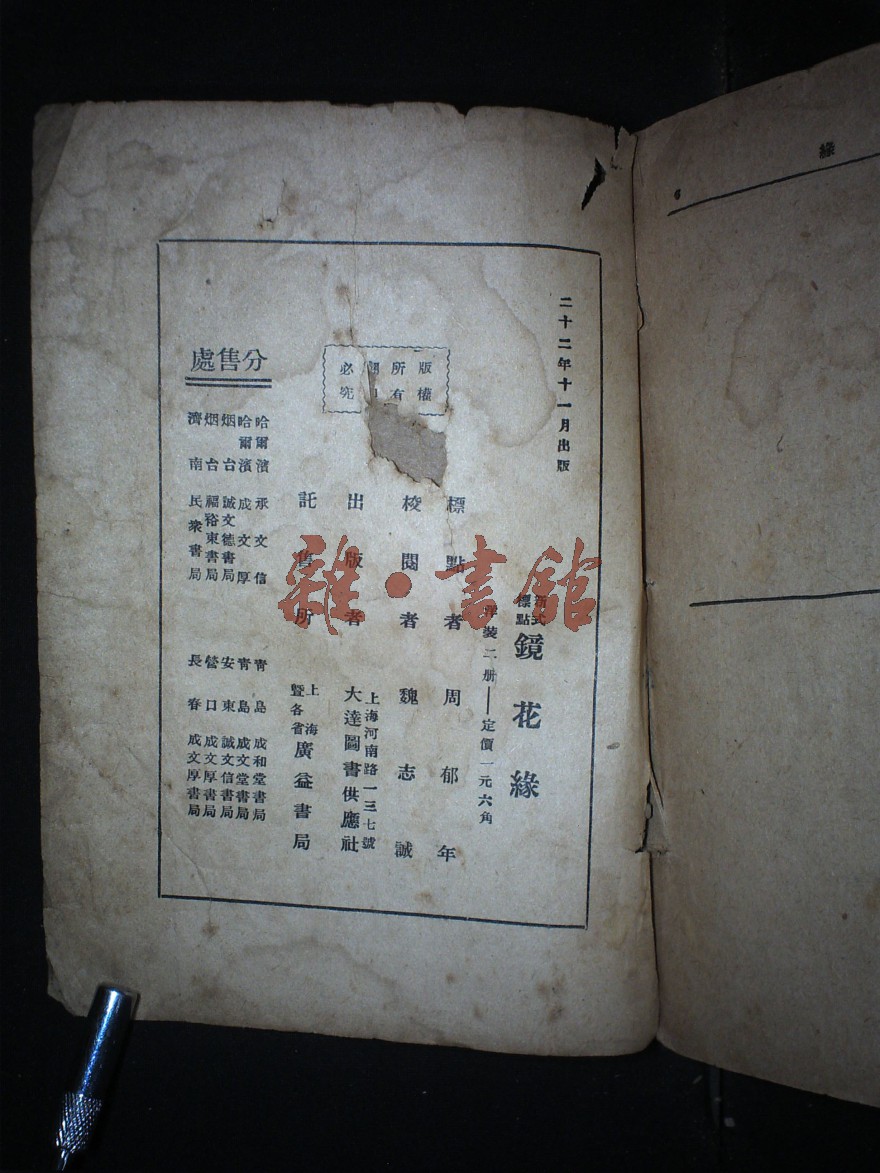 二十二年十一月出版
新式標點 鏡花緣
洋裝二册——定價一元六角
標點者 周郁年
校閱者 魏志誠
出版者 上海河南路一三七號 大達圖書供應社
託售所 上海暨各省 廣益書局
版權所有
必究
分售處
哈爾濱 承文信
哈爾濱 成文厚
烟台 誠文德書局
烟台 福裕東書局
濟南 民衆書局
青島 成和堂書局
青島 成文堂書局
安東 誠文信書局
營口 成文厚書局
長春 成文厚書局
緣
6
雜·書館